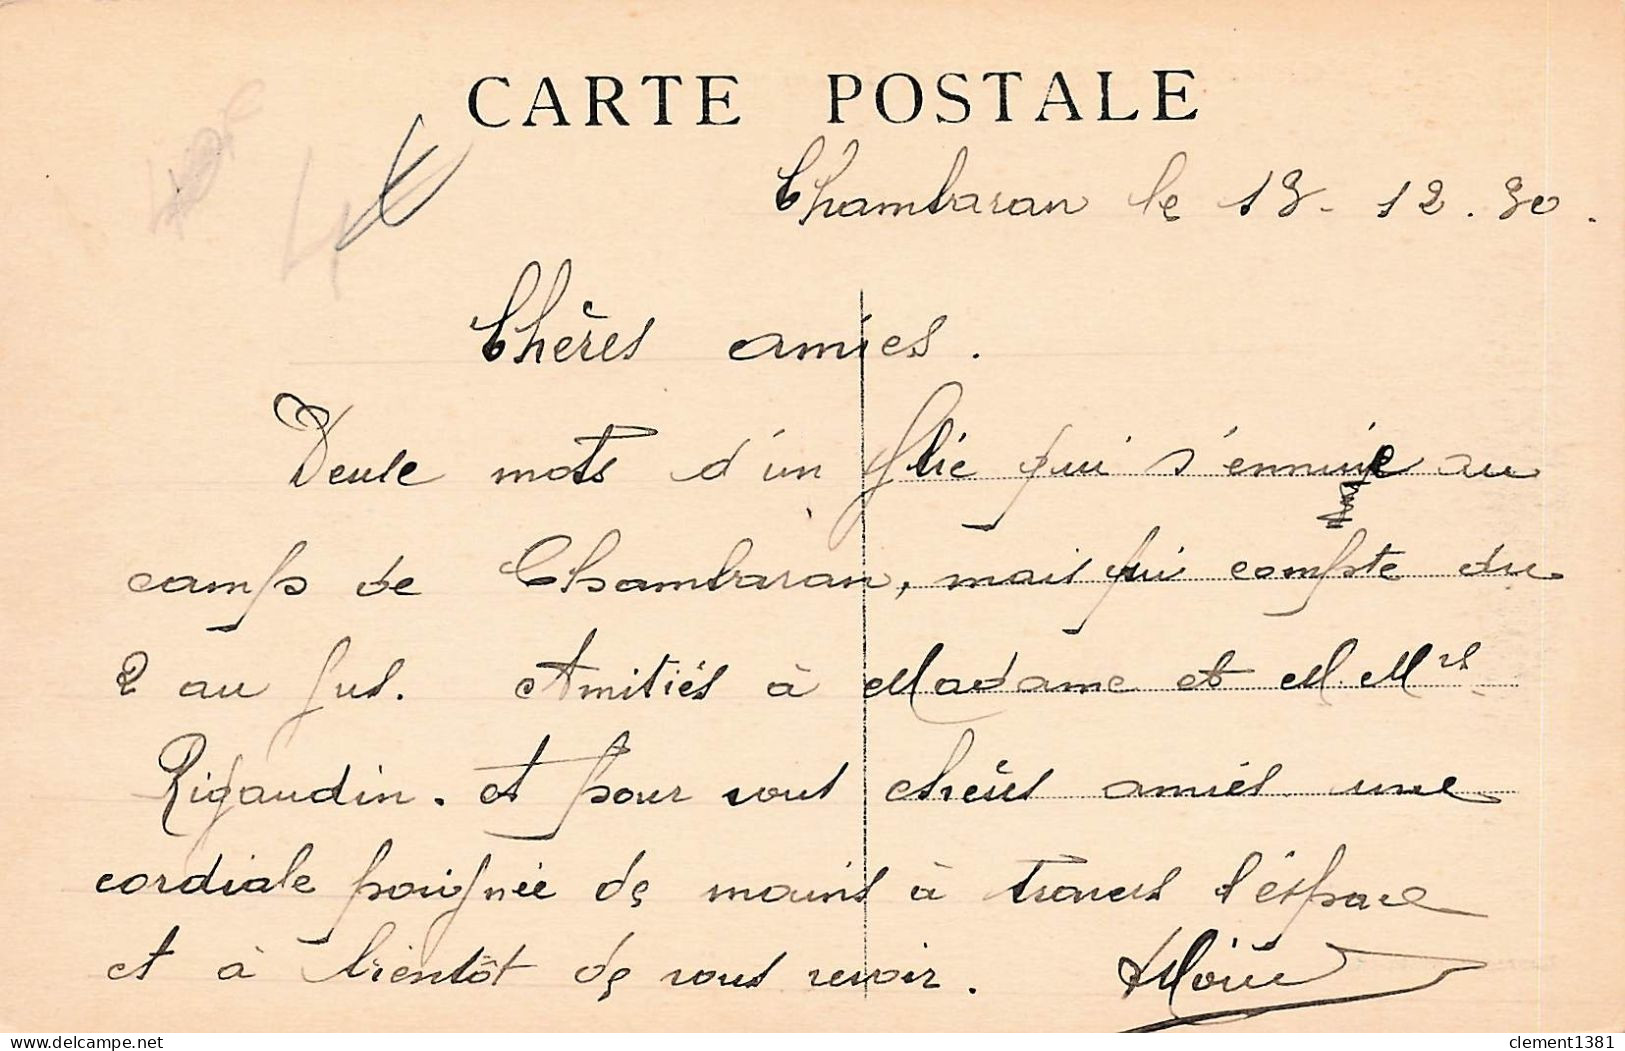 CARTE POSTALE
4€
Chambaran le 13-12.30.
Chères amies.
Deule mots d'un flic qui s'ennuie au
camp de Chambaran, mais qui compte du
2 au jus. Amitiés à Madame et M. Mrs
Rigaudin. et pour vous chères amies une
cordiale poignée de mains à travers l'éspace
et à bientôt de vous revoir.
delcampe.net
clement1381